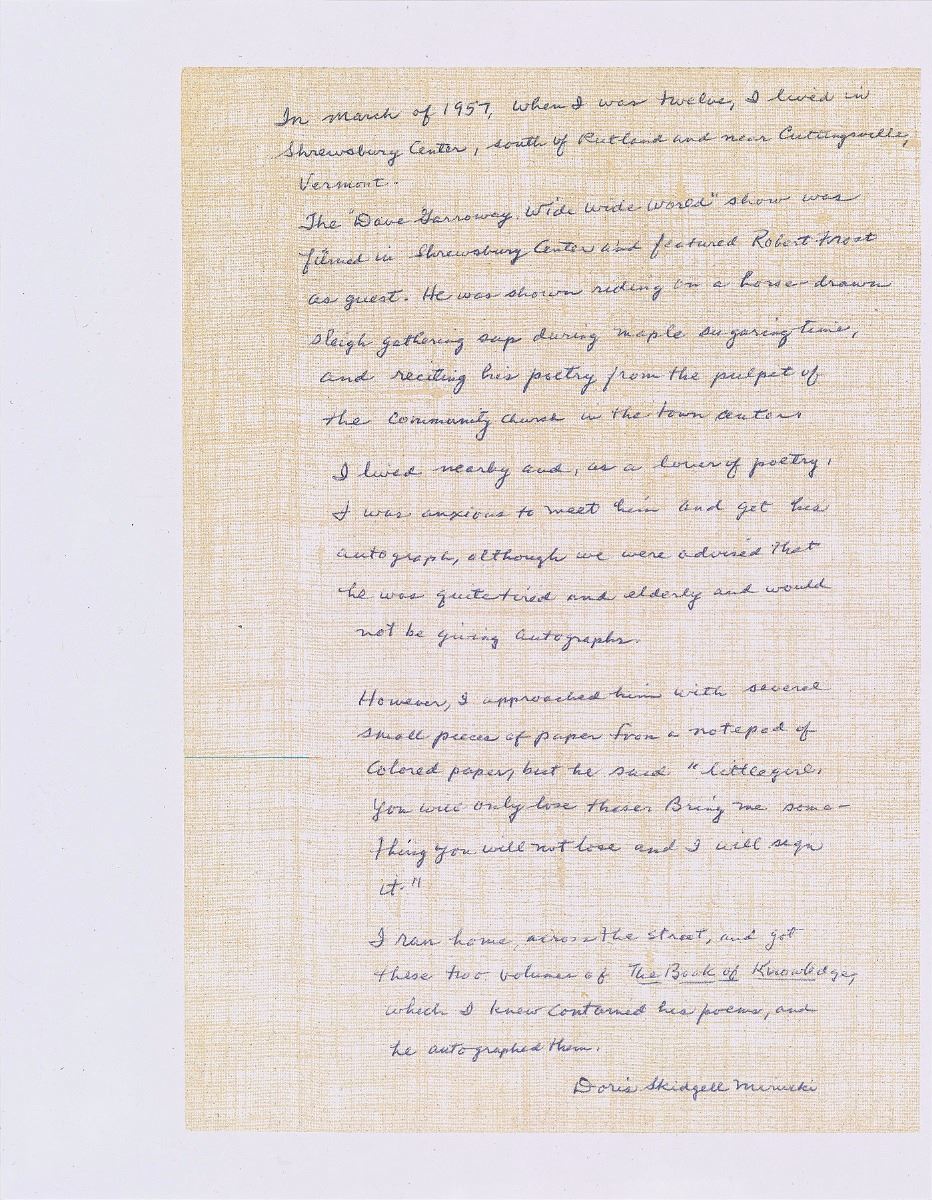 In march of 1957, when I was twelve, I lived in
Shrewsbury Center, south of Rutland and near Cuttingsville,
Vermont.
The "Dave Garroway Wide Wide World" show was
filmed in Shrewsbury Center and featured Robert Frost
as guest. He was shown riding on a horse-drawn
sleigh gathering sap during maple sugaring time,
and reciting his poetry from the pulpit of
the Community Church in the town center.
I lived nearby and, as a lover of poetry,
I was anxious to meet him and get his
autograph, although we were advised that
he was quite tired and elderly and would
not be giving autographs.
However, I approached him with several
small pieces of paper from a notepad of
colored paper, but he said "little girl,
you will only lose these. Bring me some-
thing you will not lose and I will sign
it."
I ran home, across the street, and got
these two volumes of The Book of Knowledge,
which I knew contained his poems, and
he autographed them.
Doris Skidgell